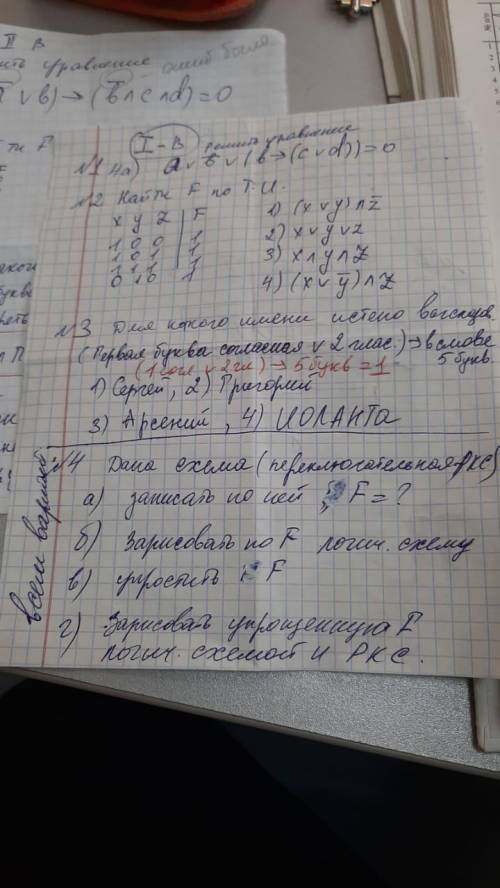 II В
уравнение
∨ b) → (b̅ ∧ c ∧ d) = 0
I - В решить уравнение
№1 4а) a ∨ b̅ ∨ (b → (c ∨ d)) = 0
№2 Найти F по Т.И.
x y z | F
1 0 0 | 1
1 0 1 | 1
1 1 1 | 1
0 1 0 | 1
1) (x ∨ y) ∧ z̅
2) x ∨ y ∨ z
3) x ∧ y ∧ z̅
4) (x ∨ y̅) ∧ z̅
№3 Для какого имени истено
(Первая буква согласная ∨ 2 глас.) → в слове
5 букв.
(1 согл ∨ 2 гл) → 5 букв = 1
1) Сергей, 2) Григорий
3) Арсений, 4) ИОЛАНТА
всем вариант
№4 Дана схема (переключательная РКС)
а) записать по ней F = ?
б) Зарисовать по F логич. схему
в) упростить F
г) Зарисовать упрощенную F
логич. схемой и РКС.